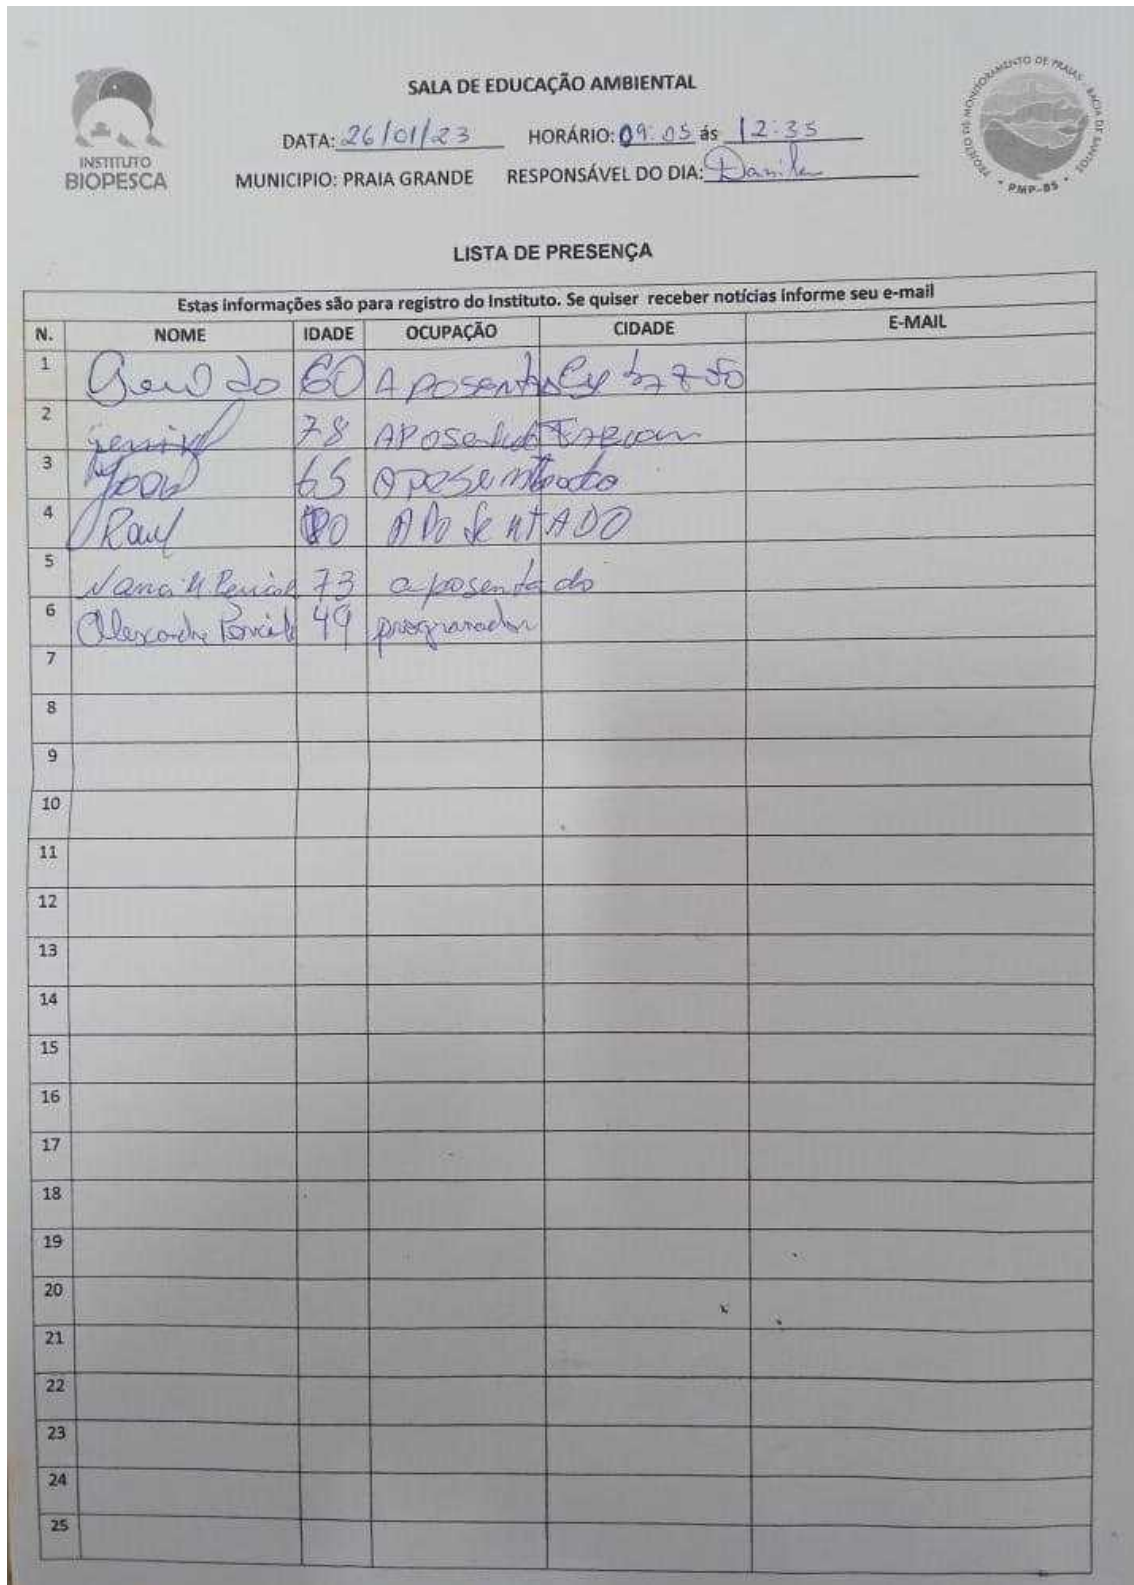 INSTITUTO
BIOPESCA
SALA DE EDUCAÇÃO AMBIENTAL
DATA: 26/01/23 HORÁRIO: 09:05 ás 12:35
MUNICIPIO: PRAIA GRANDE RESPONSÁVEL DO DIA:
PROJETO DE MONITORAMENTO DE PRAIAS - BACIA DE SANTOS
• PMP-BS •
LISTA DE PRESENÇA
Estas informações são para registro do Instituto. Se quiser receber notícias informe seu e-mail
N. NOME IDADE OCUPAÇÃO CIDADE E-MAIL
1 60
2 78
3 65 aposentado
4 Raul 80 APOSENTADO
5 73 aposentado
6 Alexandre 49 programador
7
8
9
10
11
12
13
14
15
16
17
18
19
20
21
22
23
24
25